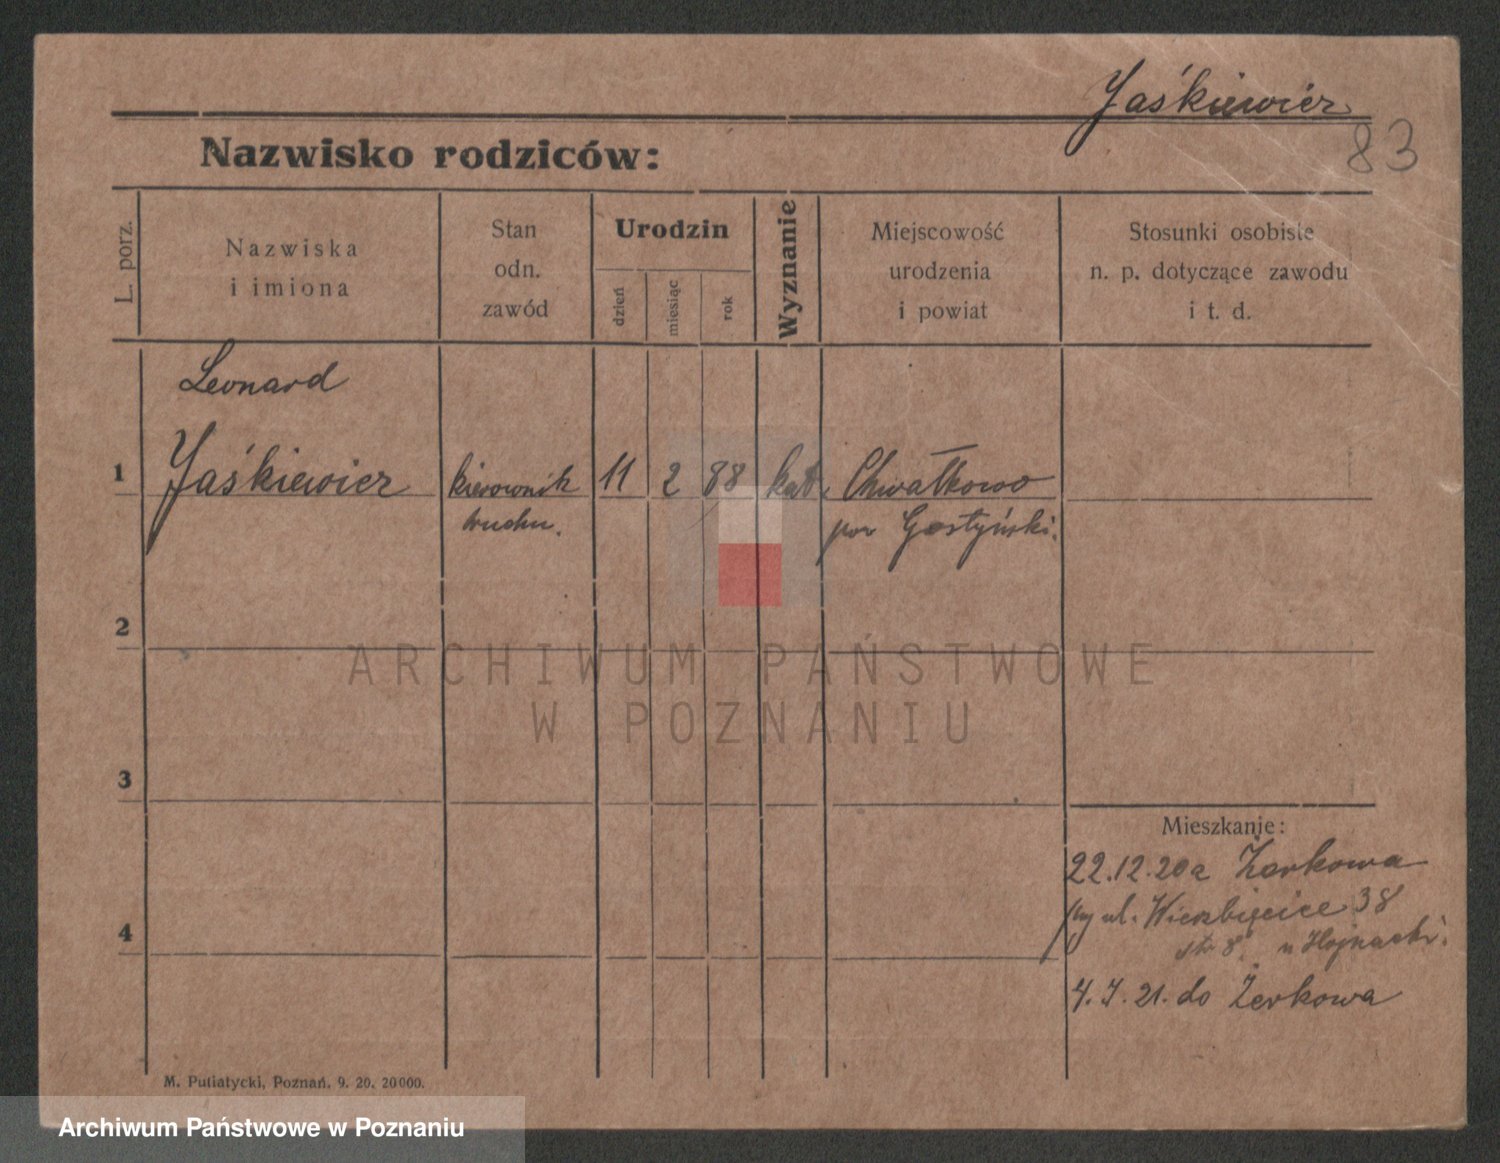 Jaśkiewicz
83
Nazwisko rodziców:
L. porz.
Nazwiska
i imiona
Stan
odn.
zawód
Urodzin
dzień
miesiąc
rok
Wyznanie
Miejscowość
urodzenia
i powiat
Stosunki osobiste
n. p. dotyczące zawodu
i t. d.
Leonard
1 Jaśkiewicz kierownik 11 2 88 kat. Chwałkowo
ruchu. pow Gostyński.
2
ARCHIWUM PAŃSTWOWE
W POZNANIU
3
Mieszkanie:
22.12.20 z Żerkowa
ul. Wierzbięcice 38
4
str 8. u Hojnacki.
4. 7. 21. do Żerkowa
M. Putiatycki, Poznań. 9. 20. 20000.
Archiwum Państwowe w Poznaniu